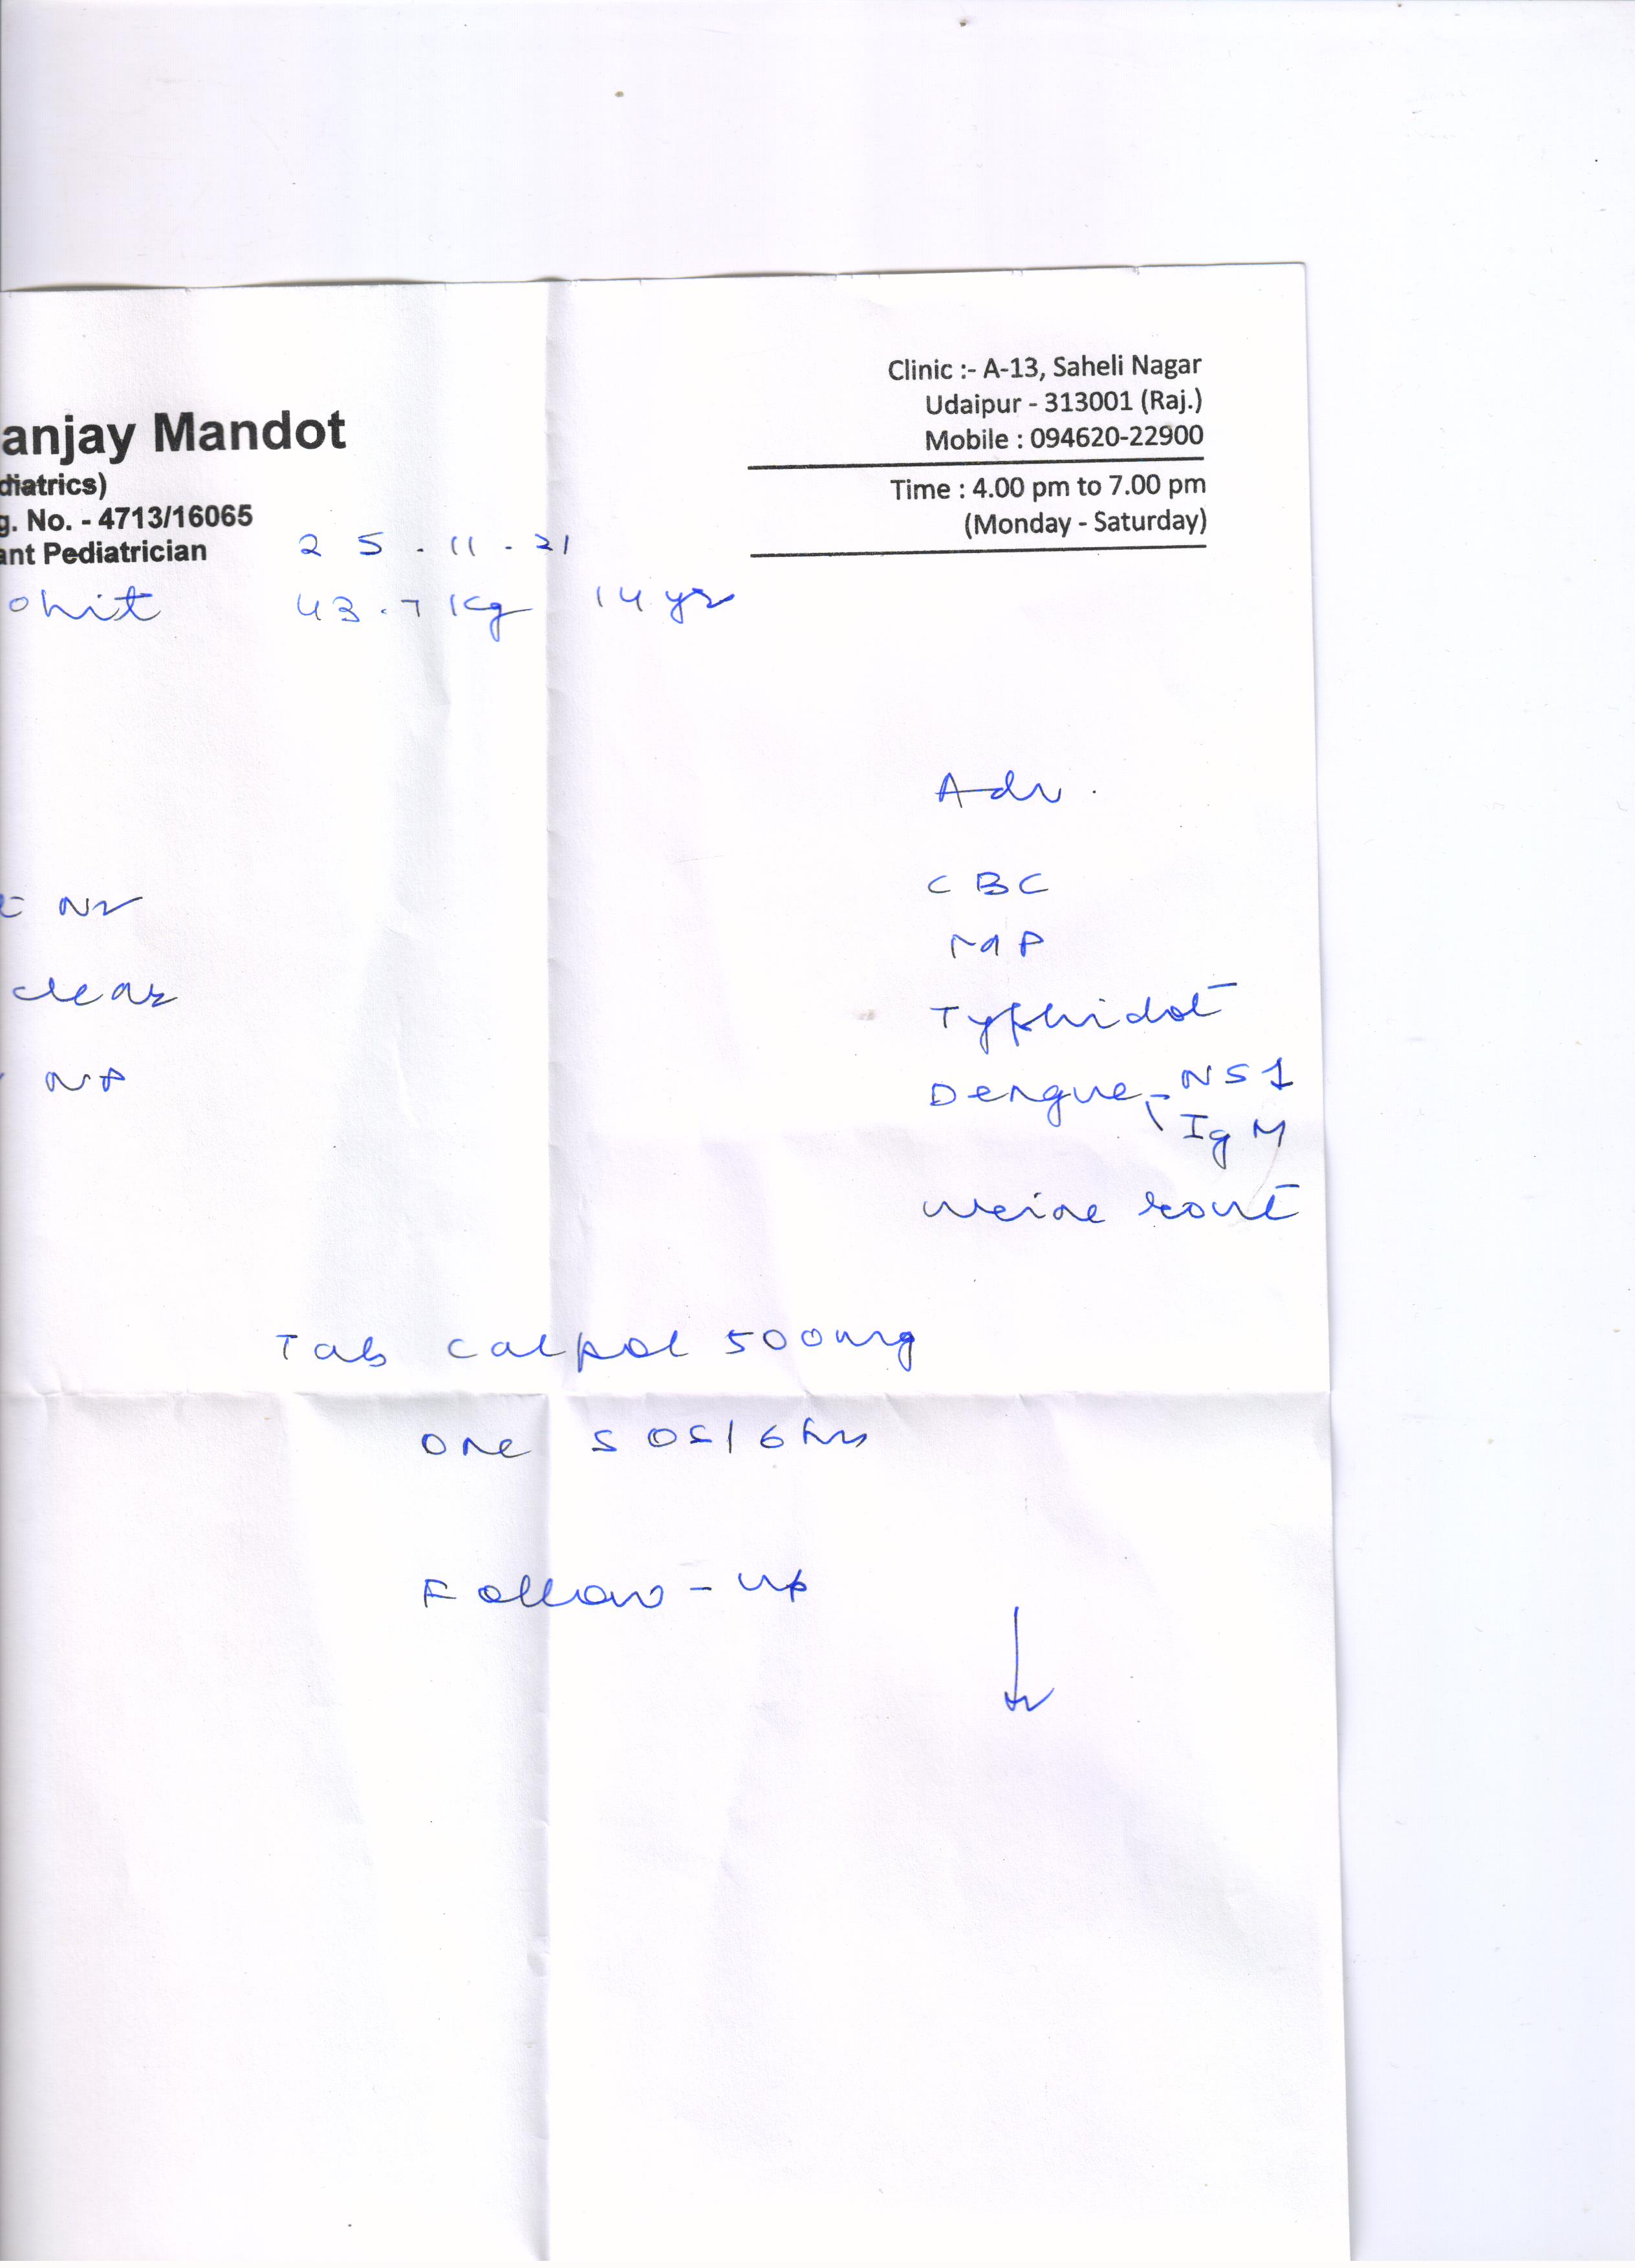 Clinic :- A-13, Saheli Nagar
Udaipur - 313001 (Raj.)
Mobile : 094620-22900
Time : 4.00 pm to 7.00 pm
(Monday - Saturday)
anjay Mandot
diatrics)
g. No. - 4713/16065
ant Pediatrician
25.11.21
ohit 43.7 Kg 14 yr
Adv.
CBC
MP
Typhidot
Dengue - NS1
IgM
urine rout
clear
Tab Calpol 500mg
one SOS/6hrs
Follow-up